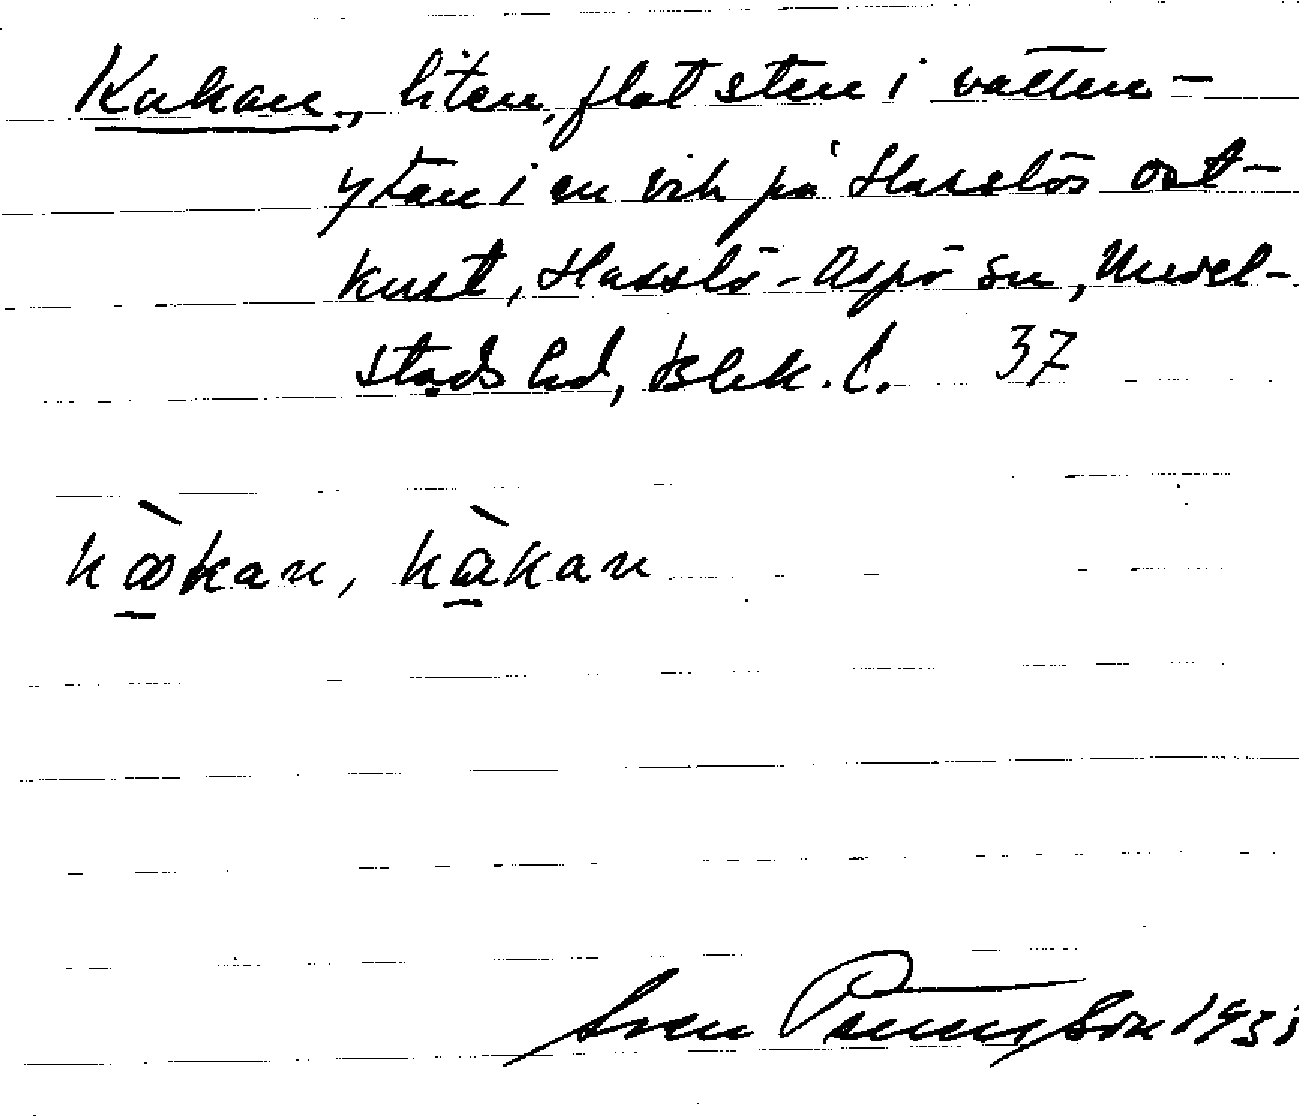 Kakan, liten, flat sten i vatten-
ytan i en vik på Hasslös ost-
kust, Hasslö-Aspö sn, Medel-
stads hd, Blek. l. 37
kakan, kàkan
Sven 1931